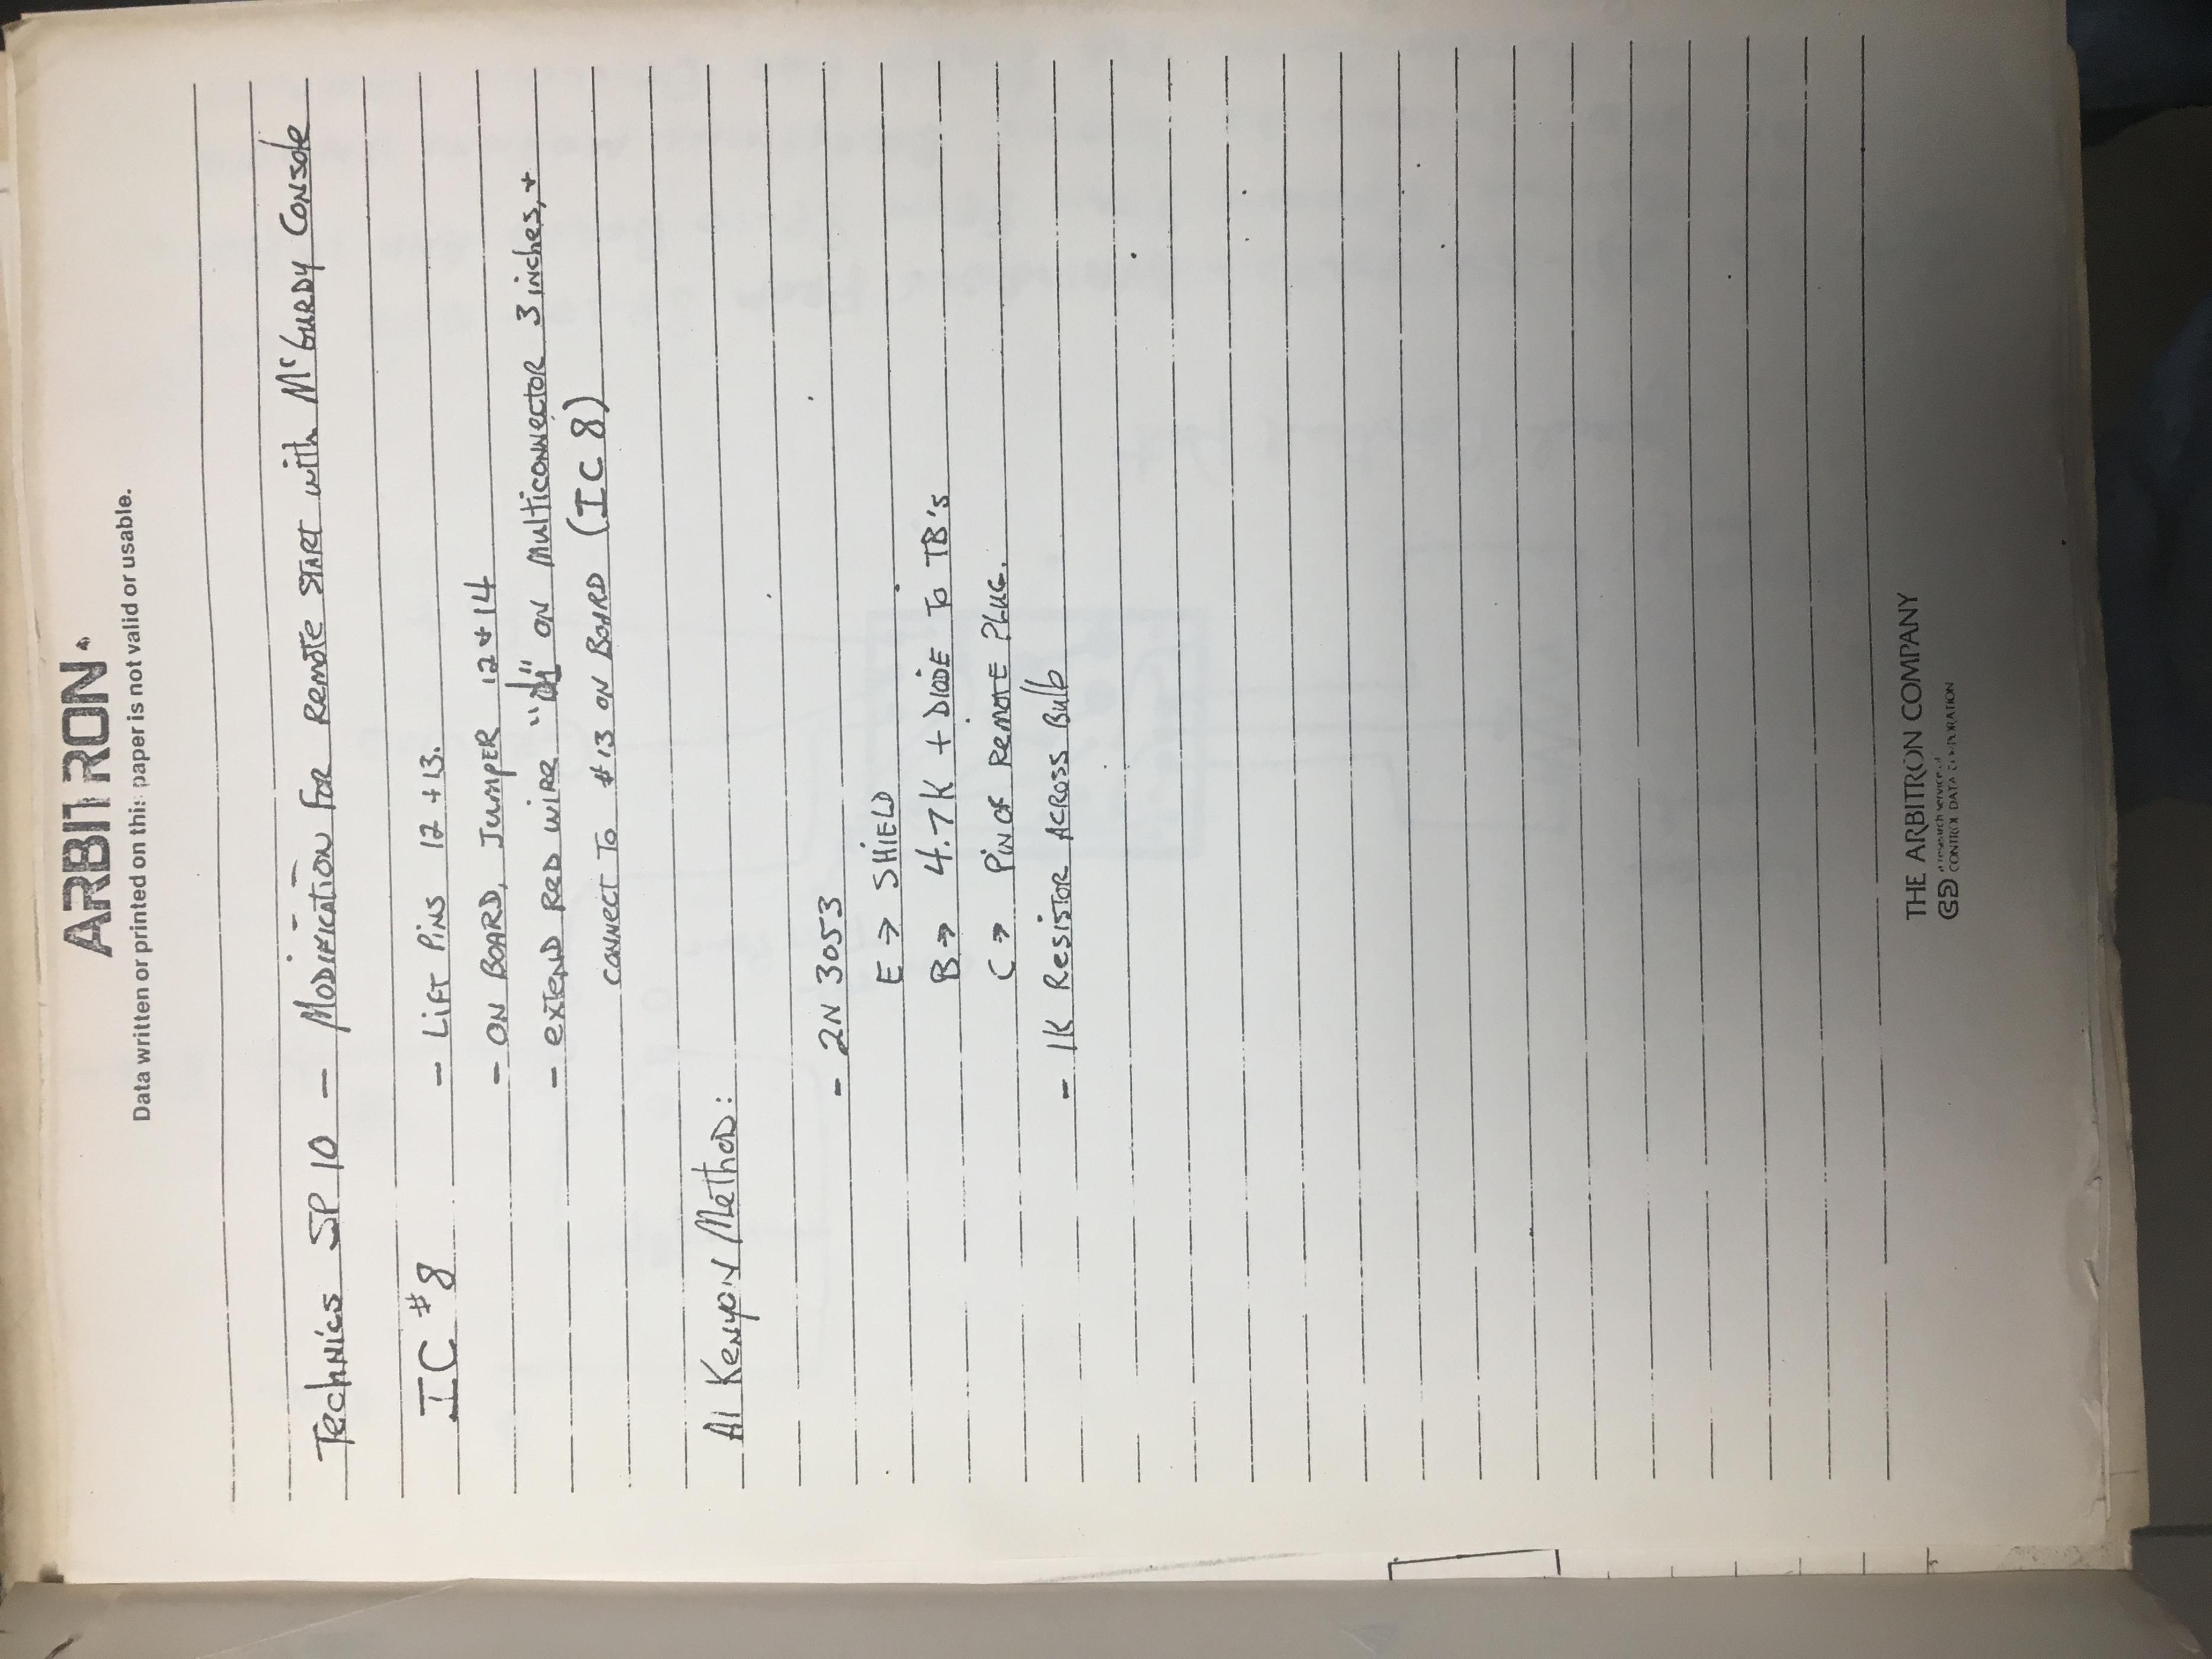 ARBITRON
Data written or printed on this paper is not valid or usable.
Technics SP 10 - Modification for Remote START with McCURDY Console
IC #8 - Lift Pins 12 + 13.
- ON BOARD, Jumper 12 + 14
- extend Red wire " " on Multiconnector 3 inches, +
connect to #13 on Board (IC 8)
Al Kenyon Method:
- 2N 3053
E → SHIELD
B → 4.7K + DIODE To TB's
C → Pin of Remote Plug.
- 1K Resistor Across Bulb
THE ARBITRON COMPANY
a research service of
CONTROL DATA CORPORATION